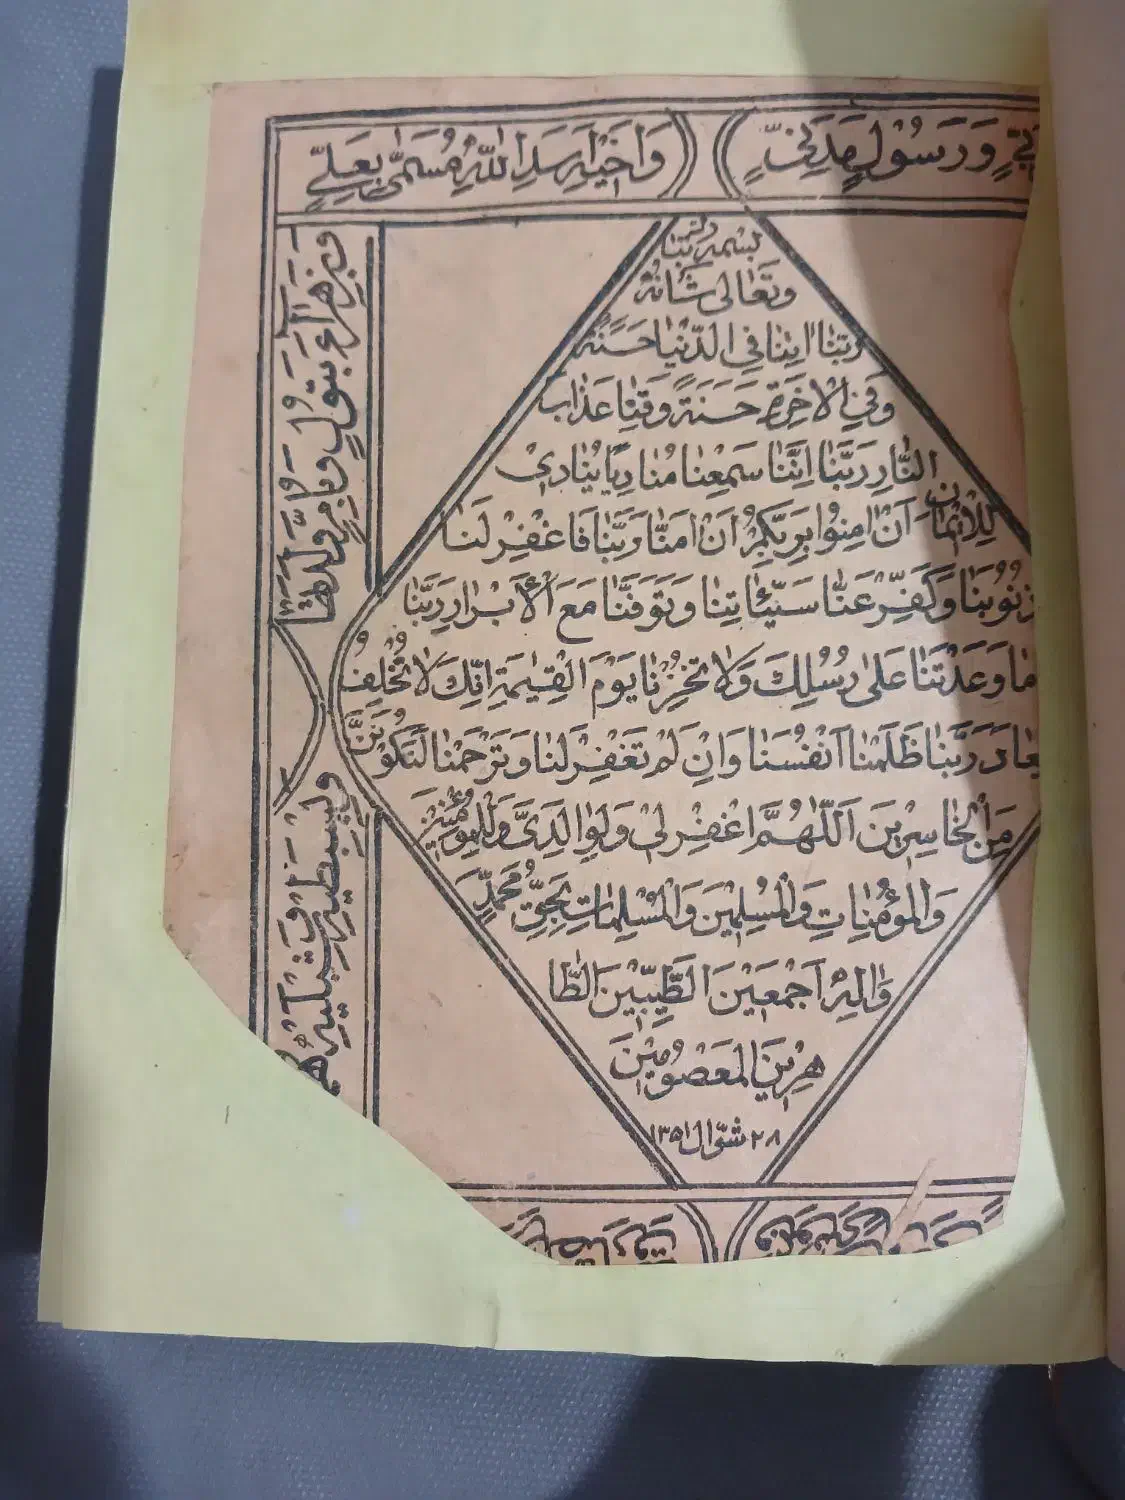 وَرَسُولٍ مَدَنِیٍّ
وَاَخِیْهِ اَسَدِ اللّٰهِ مُسَمّٰی بِعَلِیٍّ
وَبِزَهْرَاءَ بَتُولٍ وَبِاُمٍّ وَلَدَتْهَا
وَبِسِبْطَیْهِ وَشِبْلَیْهِ
بسمه ربنا
وتَعَالٰی شَانُهُ
رَبَّنَا اٰتِنَا فِی الدُّنْیَا حَسَنَةً
وَفِی الْاٰخِرَةِ حَسَنَةً وَقِنَا عَذَابَ
النَّارِ رَبَّنَا اِنَّنَا سَمِعْنَا مُنَادِیًا یُنَادِیْ
لِلْاِیْمَانِ اَنْ اٰمِنُوْا بِرَبِّکُمْ اَنْ اٰمَنَّا رَبَّنَا فَاغْفِرْ لَنَا
ذُنُوْبَنَا وَکَفِّرْ عَنَّا سَیِّئَاتِنَا وَتَوَفَّنَا مَعَ الْاَبْرَارِ رَبَّنَا
مَا وَعَدْتَنَا عَلٰی رُسُلِكَ وَلَا تُخْزِنَا یَوْمَ الْقِیٰمَةِ اِنَّكَ لَا تُخْلِفُ
رَبَّنَا ظَلَمْنَا اَنْفُسَنَا وَاِنْ لَمْ تَغْفِرْ لَنَا وَتَرْحَمْنَا لَنَکُوْنَنَّ
مِنَ الْخَاسِرِیْنَ اَللّٰهُمَّ اغْفِرْ لِیْ وَلِوَالِدَیَّ وَلِلْمُؤْمِنِیْنَ
وَالْمُؤْمِنَاتِ وَالْمُسْلِمِیْنَ وَالْمُسْلِمَاتِ بِحَقِّ مُحَمَّدٍ
وَاٰلِهٖ اَجْمَعِیْنَ الطَّیِّبِیْنَ الطَّا
هِرِیْنَ الْمَعْصُوْمِیْنَ
٢٨ شوّال ١٣٥١